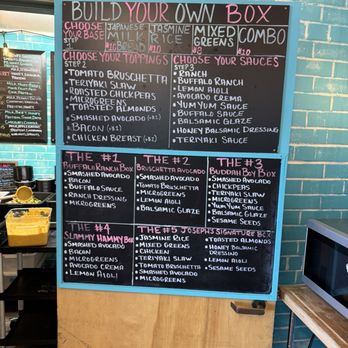 BUILD YOUR OWN BOX
CHOOSE YOUR BASE
STEP 1
JAPANESE MILK BREAD
$10
JASMINE RICE
$10
MIXED GREENS
COMBO
CHOOSE YOUR TOPPINGS
STEP 2
TOMATO BRUSCHETTA
TERIYAKI SLAW
ROASTED CHICKPEAS
MICROGREENS
TOASTED ALMONDS
SMASHED AVOCADO (+$2)
BACON (+$2)
CHICKEN BREAST
CHOOSE YOUR SAUCES
STEP 3
RANCH
BUFFALO RANCH
LEMON AIOLI
AVOCADO CREMA
YUM YUM SAUCE
BUFFALO SAUCE
BALSAMIC GLAZE
HONEY BALSAMIC DRESSING
TERIYAKI SAUCE
THE #1
BUFFALO RANCH BOX
SMASHED AVOCADO
BACON
BUFFALO SAUCE
RANCH DRESSING
MICROGREENS
THE #2
BRUSCHETTA AVOCADO
SMASHED AVOCADO
TOMATO BRUSCHETTA
MICROGREENS
LEMON AIOLI
BALSAMIC GLAZE
THE #3
BUDDAH BOY BOX
SMASHED AVOCADO
CHICKPEAS
TERIYAKI SLAW
MICROGREENS
YUM YUM SAUCE
BALSAMIC GLAZE
SESAME SEEDS
THE #4
SLAMMY HAMMY BOX
SMASHED AVOCADO
BACON
MICROGREENS
AVOCADO CREMA
LEMON AIOLI
THE #5 JOSEPH'S SIGNATURE BOX
JASMINE RICE
MIXED GREENS
CHICKEN
TERIYAKI SLAW
TOMATO BRUSCHETTA
SMASHED AVOCADO
MICROGREENS
TOASTED ALMONDS
HONEY BALSAMIC DRESSING
LEMON AIOLI
SESAME SEEDS